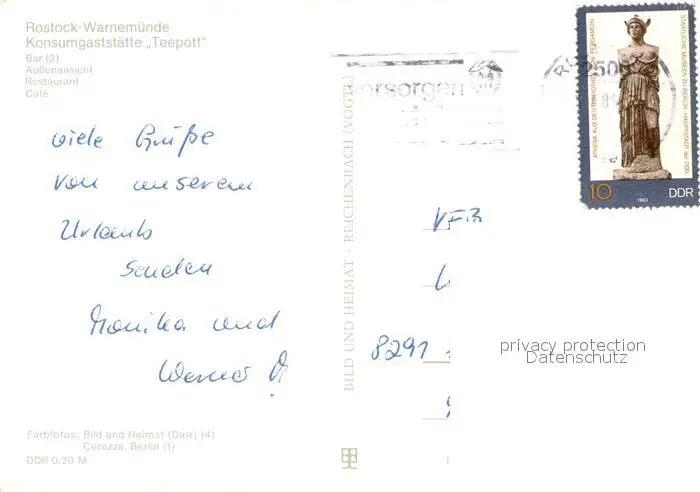 Rostock-Warnemünde
Konsumgaststätte „Teepott"
Bar (2)
Außenansicht
Restaurant
Café
viele Grüße
von unserem
Urlaub
senden
Monika und
Werner
Farbfotos: Bild und Heimat (Darr) (4)
Corazza, Berlin (1)
DDR 0,20 M
BILD UND HEIMAT · REICHENBACH (VOGTL)
vorsorgen
2500
ATHENA AUS DER BIBLIOTHEK VON PERGAMON
STAATLICHE MUSEEN ZU BERLIN · HAUPTSTADT der DDR
10
DDR
1983
VEB
8291
privacy protection
Datenschutz